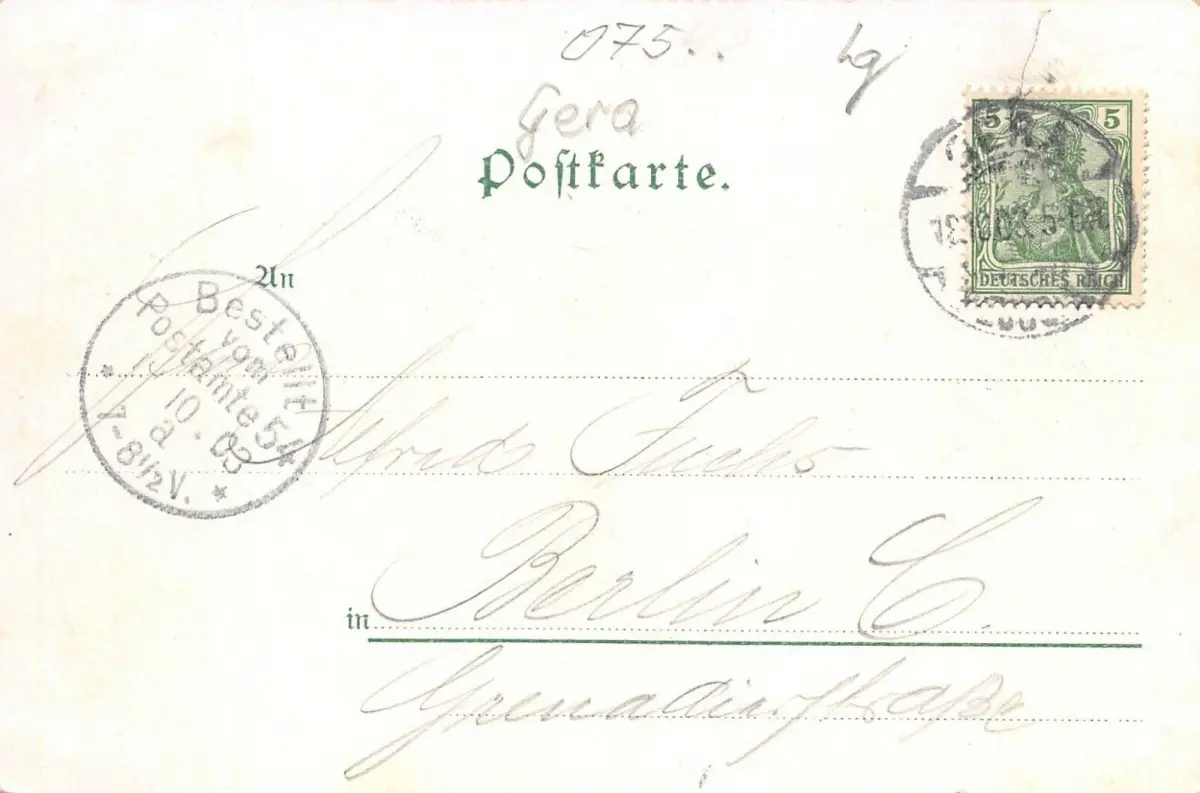 075..
Gera
Postkarte.
5 5
DEUTSCHES REICH
An
Bestellt
vom
Postamte 54
10.03
a
7-8½V.
Alfred Fuchs
in Berlin C.
Grenadierstraße